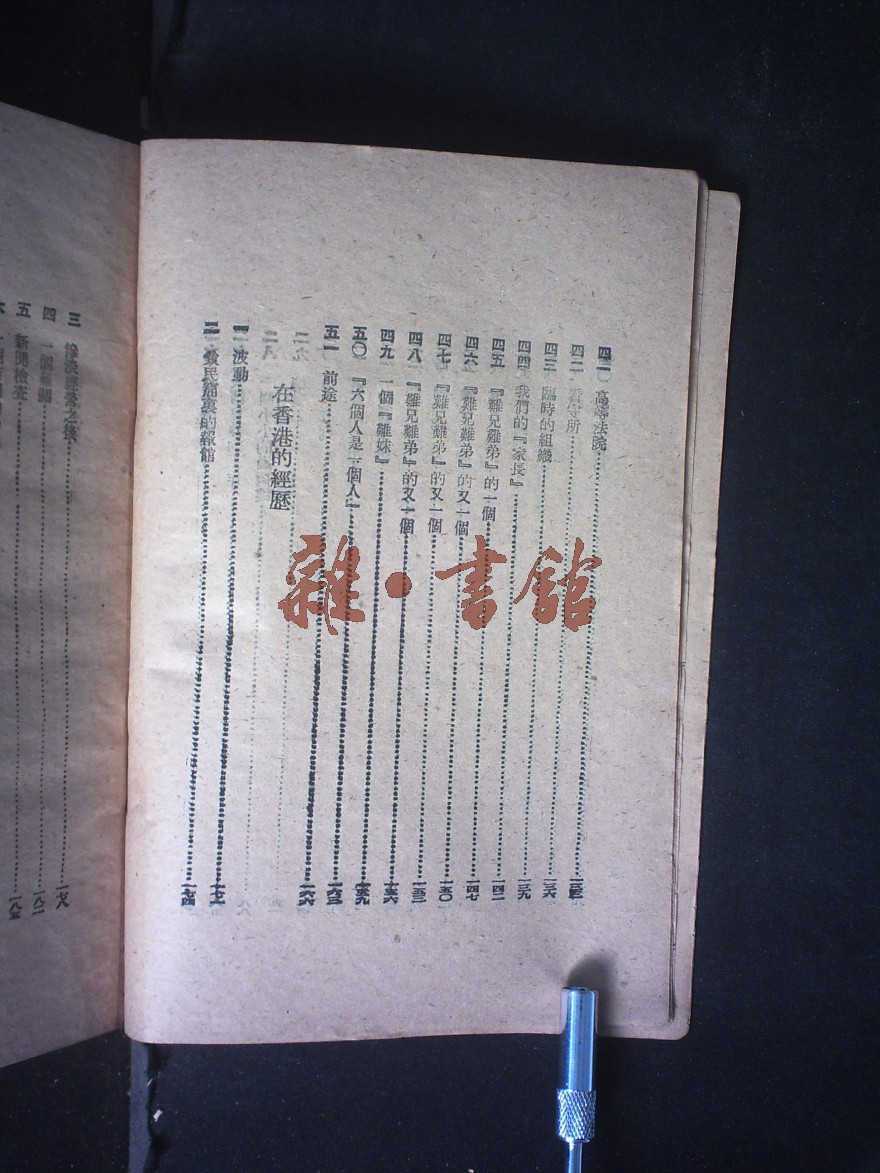 四一 高等法院
四二 看守所 一三六
四三 臨時的組織 一三九
四四 我們的『家長』 一四二
四五 『難兄難弟』的一個 一四七
四六 『難兄難弟』的又一個 一五〇
四七 『難兄難弟』的又一個 一五三
四八 『難兄難弟』的又一個 一五六
四九 一個『難妹』 一五九
五〇 『六個人是一個人』 一六三
五一 前途 一六六
在香港的經歷
一 波動 一七一
二 貧民窟裏的報館 一七四
三 慘淡經營之後 一七八
四 一個難關 一八二
五 新聞檢查 一八五
雜·書館